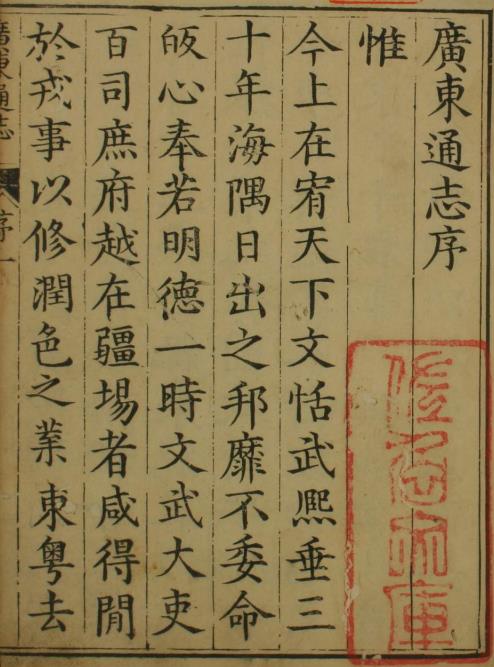 廣東通志序
惟
今上在宥天下文恬武熈垂三
十年海隅日出之邦靡不委命
皈心奉若明德一時文武大吏
百司庶府越在疆場者咸得閒
於戎事以修潤色之業東粤去
廣東通志
序一
佐伯文庫